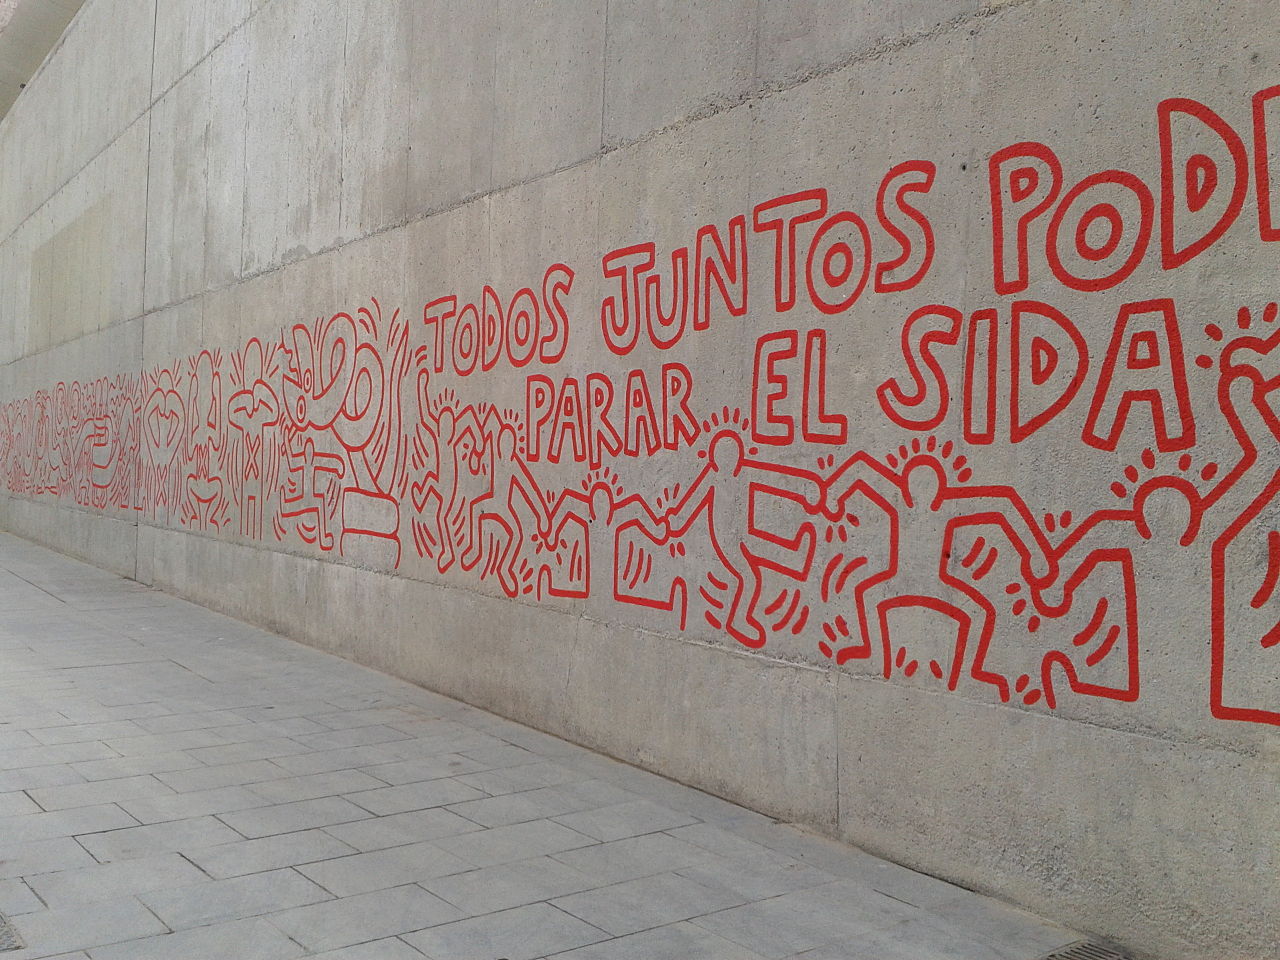 TODOS JUNTOS PODE
PARAR EL SIDA